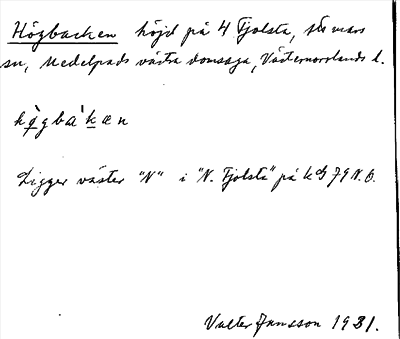 Högbacken höjd på 4 Fjolsta,
sn, Medelpads västra domsaga, Västernorrlands l.
hø̀gbàkæn
Ligger väster "N" i "N. Fjolsta" på kbl 79 N.O.
Valter Jansson 1931.